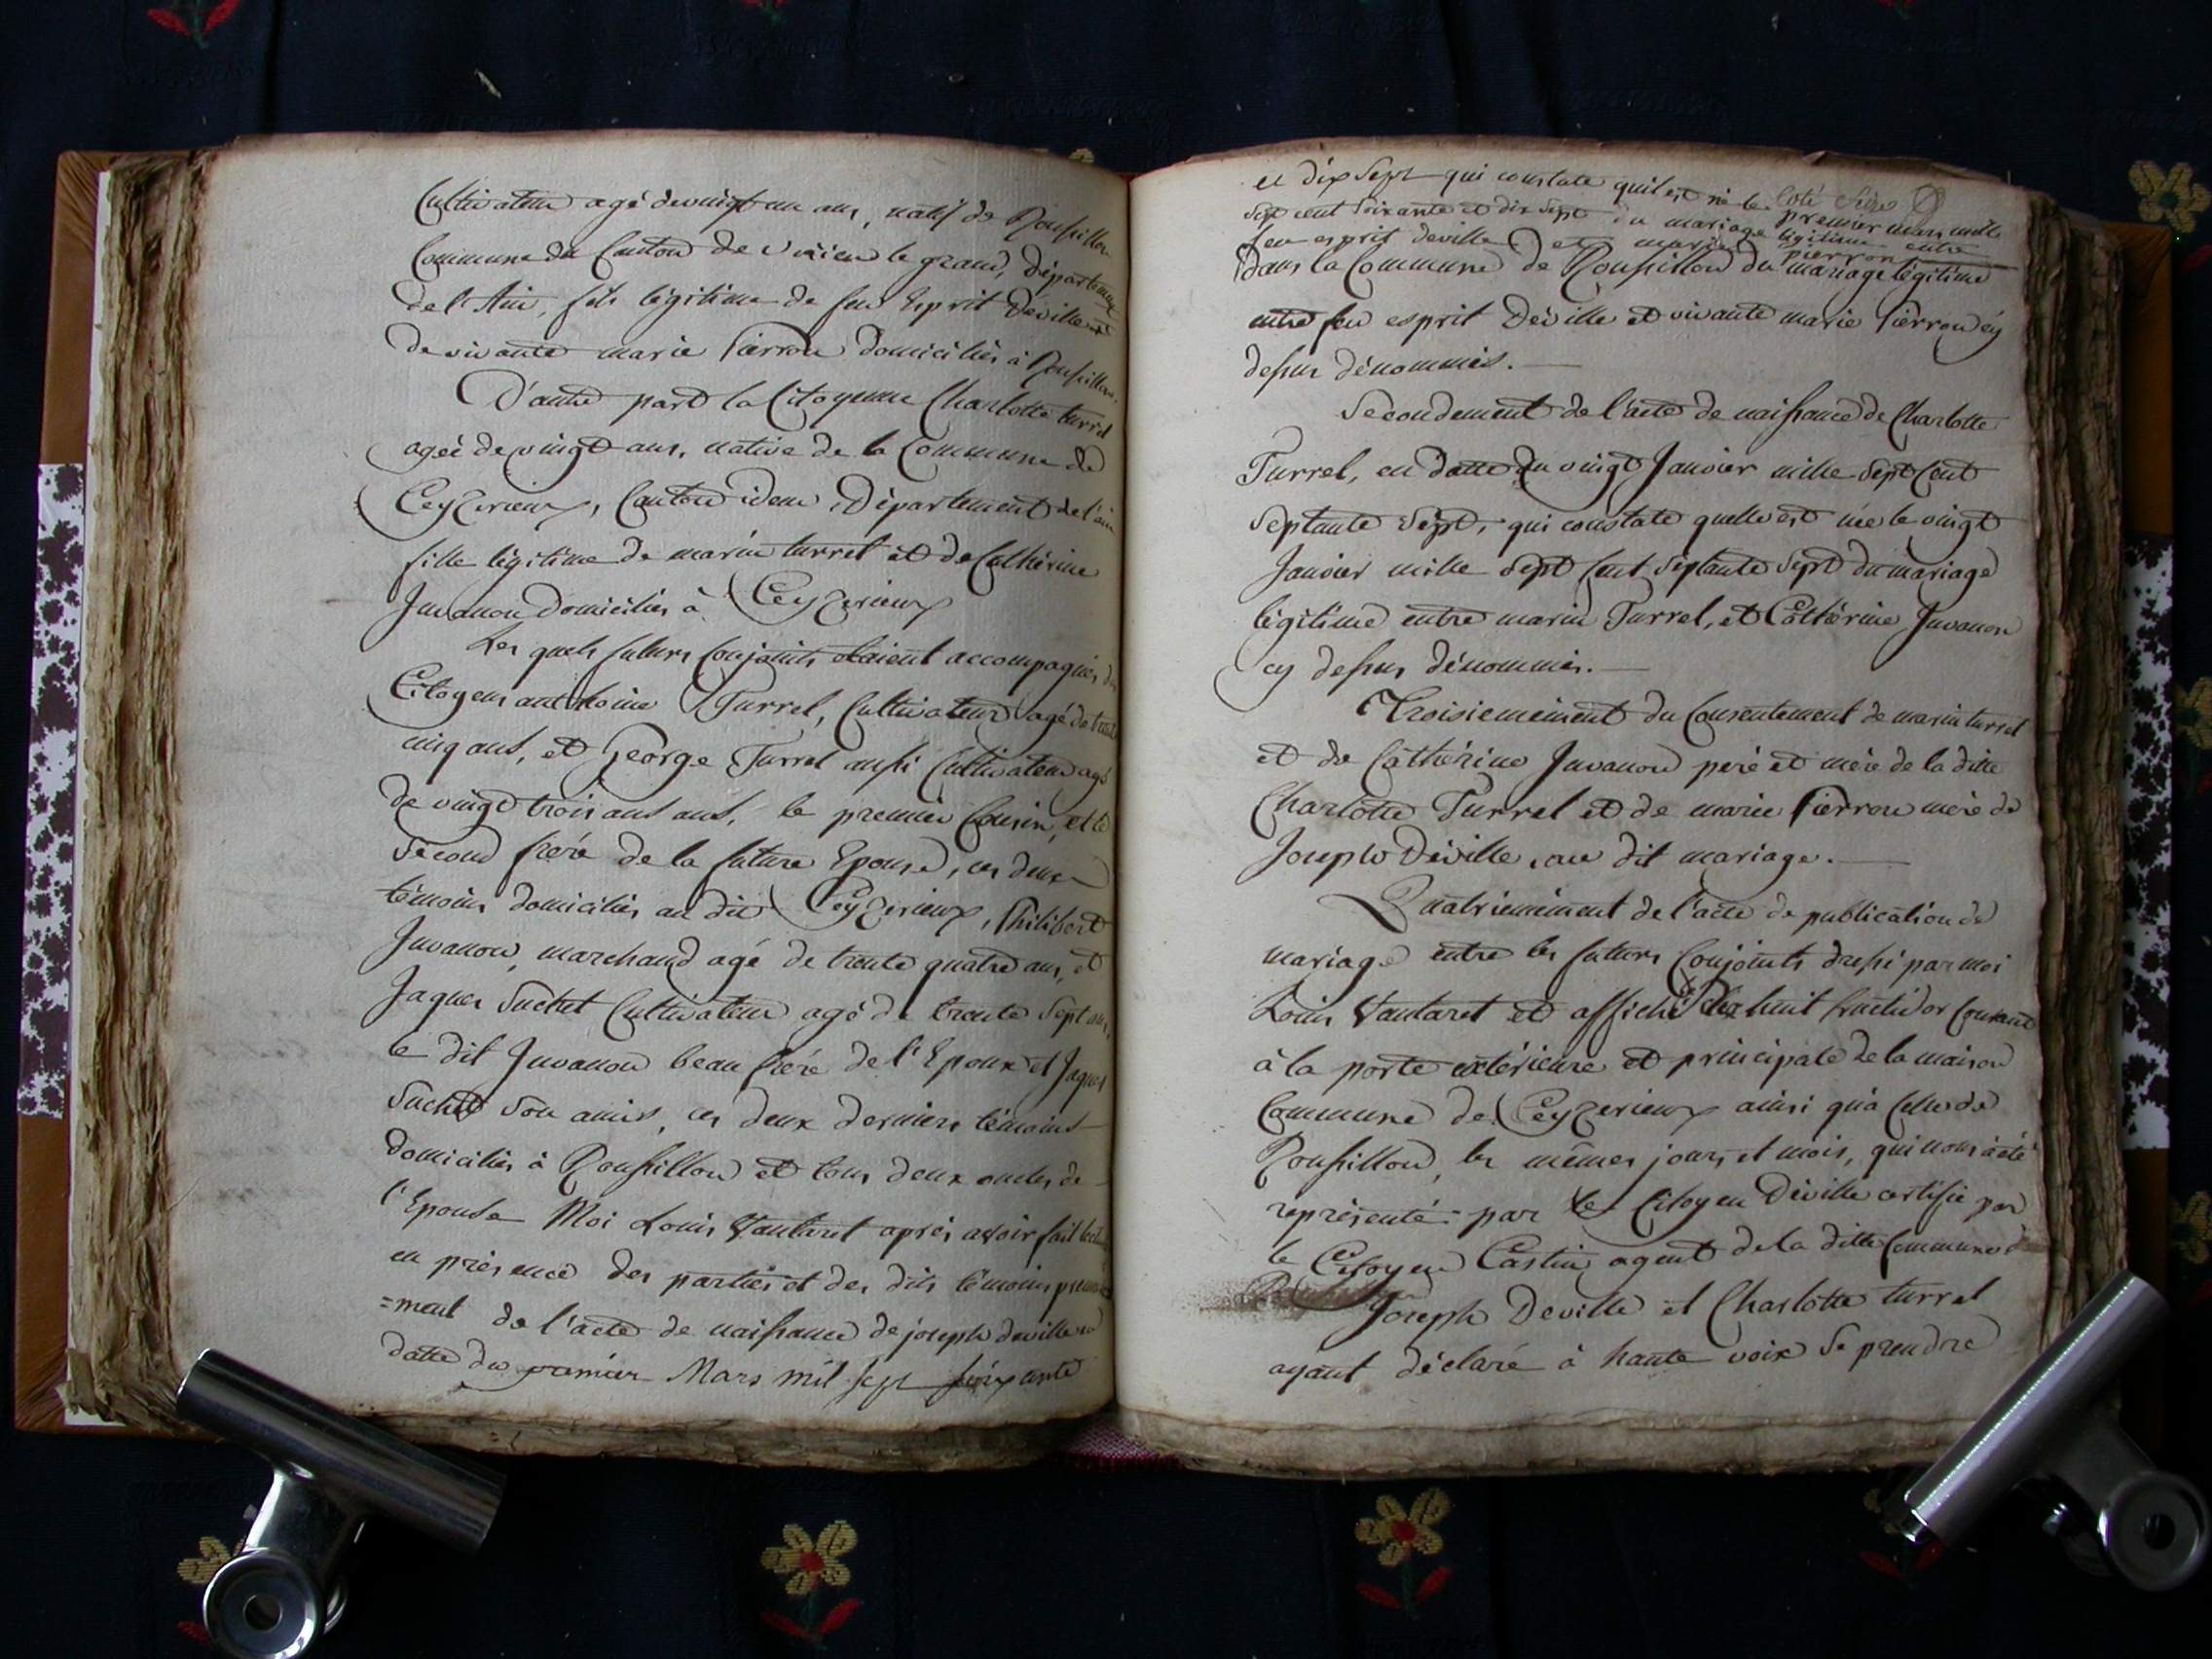 Cultivateur agé de vingt un ans, natif de Roussillon
Commune du Canton de virieu le grand, département
de l'Ain, fils légitime de feu Esprit Déville et
de vivante marie Pierron domiciliés à Roussillon.
D'autre part la Citoyenne Charlotte turrel
agée de vingt ans, native de la Commune de
Ceyzerieux, Canton idem, Département de l'ain
fille légitime de marin turrel et de Cathérine
Juvanon domiciliés à Ceyzerieux
Les quels futurs Conjoints étaient accompagnés des
Citoyens anthoine Turrel, Cultivateur agé de trente
cinq ans, et George Turrel aussi Cultivateur agé
de vingt trois ans ans, le premier Cousin, et le
Second frère de la future Epouse, ces deux
témoins domiciliés au dit Ceyzerieux, Philibert
Juvanon, marchand agé de trente quatre ans, et
Jaques Suchet Cultivateur agé de trente Sept ans,
le dit Juvanon beau frère de l'Epoux et Jaques
Suchet Son amis, ces deux derniers témoins
domiciliés à Roussillon et tous deux oncles de
l'Epouse Moi Louis Vantaret après avoir fait lecture
en présence des parties et des dits témoins premiere
=ment de l'acte de naissance de joseph deville en
datte du premier Mars mil sept soixante
et dix Sept qui constate qu'il est né le Coté Seize
premier mars mille
Sept cent Soixante et dix Sept du mariage légitime entre
feu esprit deville et marie pierron
dans la Commune de Roussillon du mariage légitime
entre feu esprit Déville et vivante marie Pierron cy
dessus dénommés.
Secondement de l'acte de naissance de Charlotte
Turrel, en datte du vingt Janvier mille Sept Cent
Septante Sept, qui constate quelle est née le vingt
Janvier mille Sept Cent Septante Sept du mariage
légitime entre marin Turrel, et Cathérine Juvanon
cy dessus dénommés.
Troisiemement du Consentement de marin turrel
et de Cathérine Juvanon peré et mère de la ditte
Charlotte Turrel et de marie Pierron mère de
Joseph Déville, au dit mariage.
Quatriemement de l'acte de publication de
mariage entre les futurs Conjoints dressé par moi
Louis Vantaret et affiché le huit fructidor Courant
à la porte extérieure et principale de la maison
Commune de Ceyzerieux ainsi qu'à Celle de
Roussillon, les mêmes jours et mois, qui nous a été
représenté par le Citoyen Déville certifié par
le Citoyen Castin agent de la ditte Commune de
Joseph Deville et Charlotte turrel
ayant déclaré à haute voix Se prendre